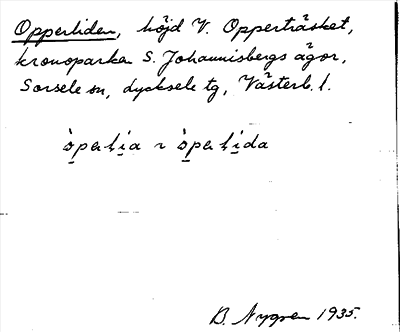 Opperliden, höjd V. Opperträsket,
kronoparken S. Johannisbergs ägor,
Sorsele sn, Lycksele tg, Västerb. l.
òpeṛlia ~ òpeṛlida
B. Nygren 1935.